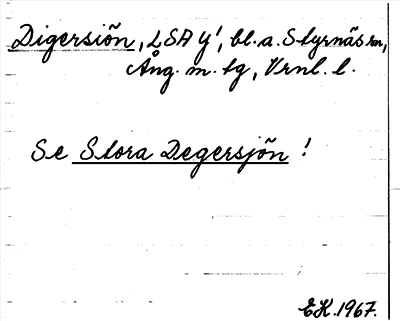 Digersiön, LSA Y', bl. a. Styrnäs sn,
Ång. m. tg, Vrnl. l.
Se Stora Degersjön !
EK. 1967.